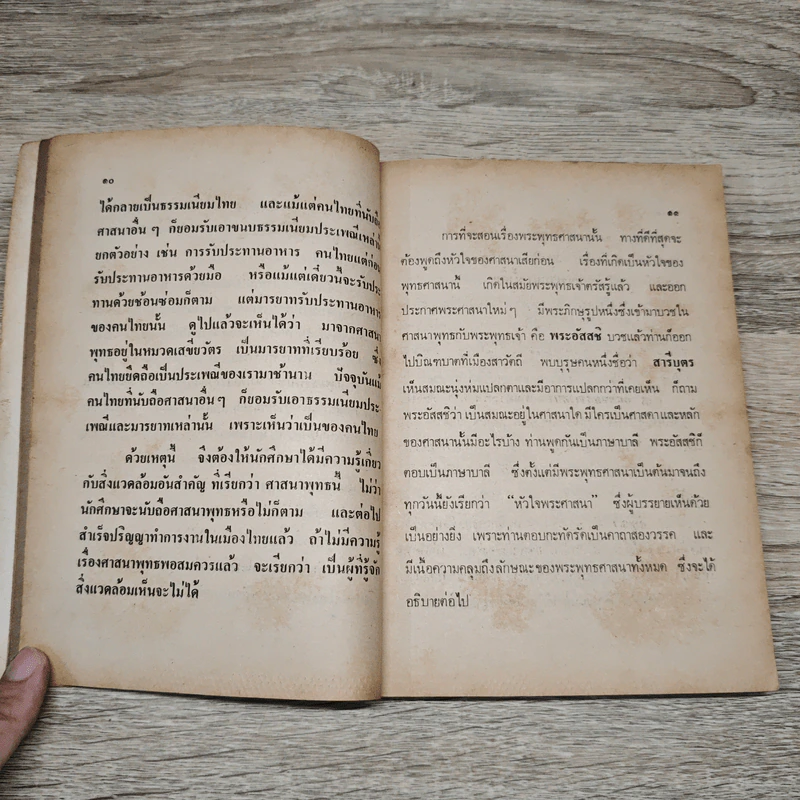 ๑๐
ได้กลายเป็นธรรมเนียมไทย และแม้แต่คนไทยที่นับถือ
ศาสนาอื่น ๆ ก็ยอมรับเอาขนบธรรมเนียมประเพณีเหล่านี้
ยกตัวอย่าง เช่น การรับประทานอาหาร คนไทยแต่ก่อน
รับประทานอาหารด้วยมือ หรือแม้แต่เดี๋ยวนี้จะรับประ
ทานด้วยช้อนซ่อมก็ตาม แต่มารยาทรับประทานอาหาร
ของคนไทยนั้น ดูไปแล้วจะเห็นได้ว่า มาจากศาสนา
พุทธอยู่ในหมวดเสขิยวัตร เป็นมารยาทที่เรียบร้อย ซึ่ง
คนไทยยึดถือเป็นประเพณีของเรามาช้านาน ปัจจุบันแม้
คนไทยที่นับถือศาสนาอื่น ๆ ก็ยอมรับเอาธรรมเนียมประ-
เพณีและมารยาทเหล่านั้น เพราะเห็นว่าเป็นของคนไทย
ด้วยเหตุนี้ จึงต้องให้นักศึกษาได้มีความรู้เกี่ยว
กับสิ่งแวดล้อมอันสำคัญ ที่เรียกว่า ศาสนาพุทธนี้ ไม่ว่า
นักศึกษาจะนับถือศาสนาพุทธหรือไม่ก็ตาม และต่อไป
สำเร็จปริญญาทำการงานในเมืองไทยแล้ว ถ้าไม่มีความรู้
เรื่องศาสนาพุทธพอสมควรแล้ว จะเรียกว่า เป็นผู้ที่รู้จัก
สิ่งแวดล้อมเห็นจะไม่ได้
๑๑
การที่จะสอนเรื่องพระพุทธศาสนานั้น ทางที่ดีที่สุดจะ
ต้องพูดถึงหัวใจของศาสนาเสียก่อน เรื่องที่เกิดเป็นหัวใจของ
พุทธศาสนานี้ เกิดในสมัยพระพุทธเจ้าตรัสรู้แล้ว และออก
ประกาศพระศาสนาใหม่ ๆ มีพระภิกษุรูปหนึ่งซึ่งเข้ามาบวชใน
ศาสนาพุทธกับพระพุทธเจ้า คือ พระอัสสชิ บวชแล้วท่านก็ออก
ไปบิณฑบาตที่เมืองสาวัตถี พบบุรุษคนหนึ่งชื่อว่า สารีบุตร
เห็นสมณะนุ่งห่มแปลกตาและมีอาการแปลกกว่าที่เคยเห็น ก็ถาม
พระอัสสชิว่า เป็นสมณะอยู่ในศาสนาใด มีใครเป็นศาสดาและหลัก
ของศาสนานั้นมีอะไรบ้าง ท่านพูดกันเป็นภาษาบาลี พระอัสสชิก็
ตอบเป็นภาษาบาลี ซึ่งตั้งแต่มีพระพุทธศาสนาเป็นต้นมาจนถึง
ทุกวันนี้ยังเรียกว่า “หัวใจพระศาสนา” ซึ่งผู้บรรยายเห็นด้วย
เป็นอย่างยิ่ง เพราะท่านตอบกะทัดรัดเป็นคาถาสองวรรค และ
มีเนื้อความคลุมถึงลักษณะของพระพุทธศาสนาทั้งหมด ซึ่งจะได้
อธิบายต่อไป